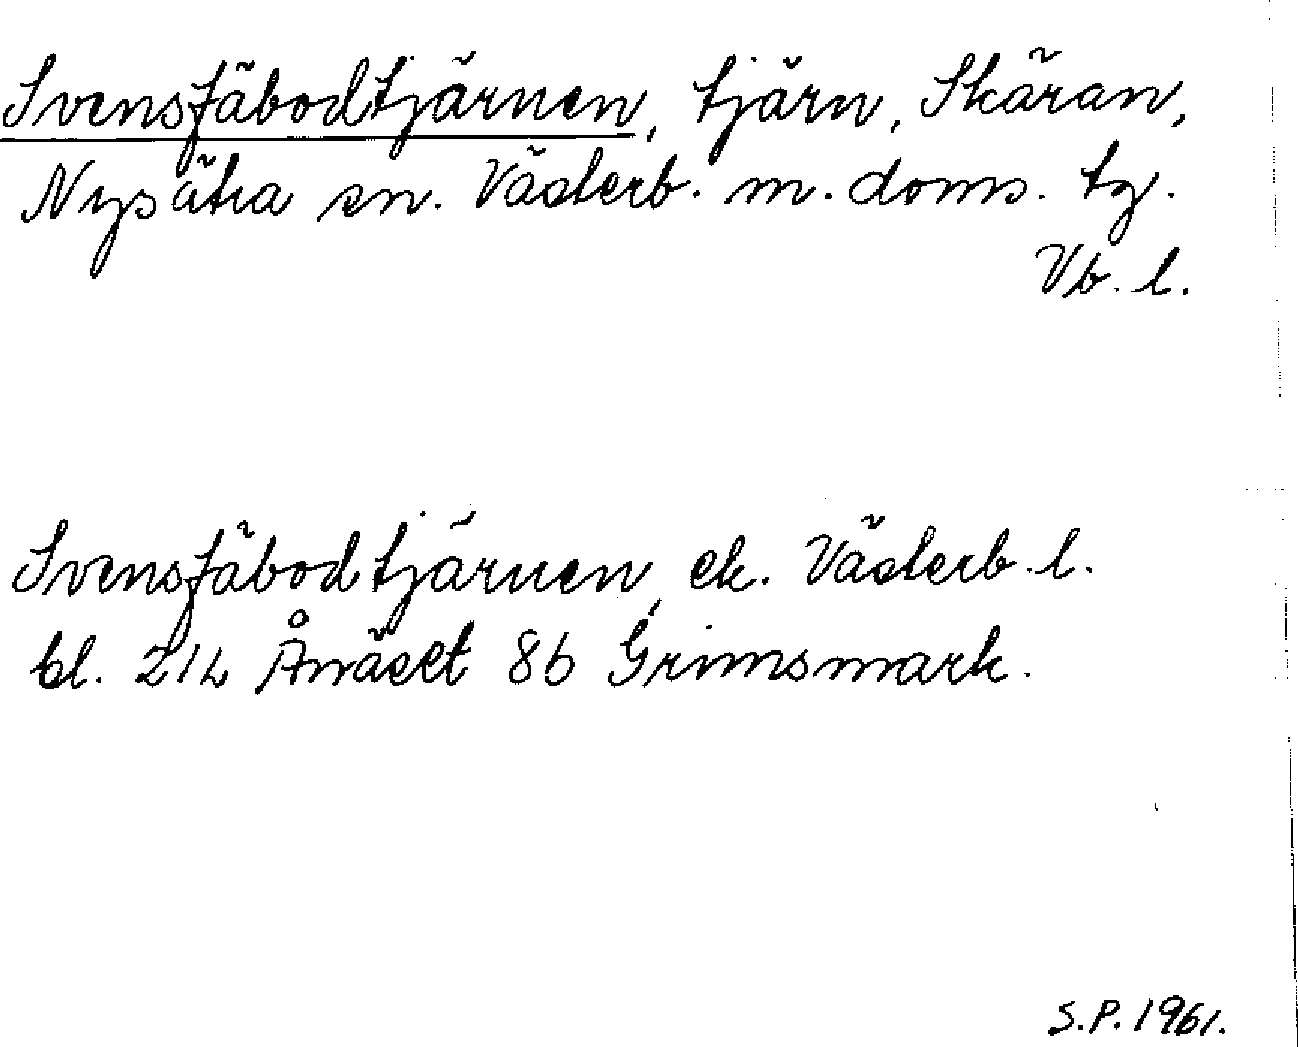 Svensfäbodtjärnen, tjärn, Skäran,
Nysätra sn. Västerb. m. doms. tg.
Vb. l.
Svensfäbodtjärnen, ek. Västerb. l.
bl. 212 Ånäset 8b Grimsmark.
S.P. 1961.